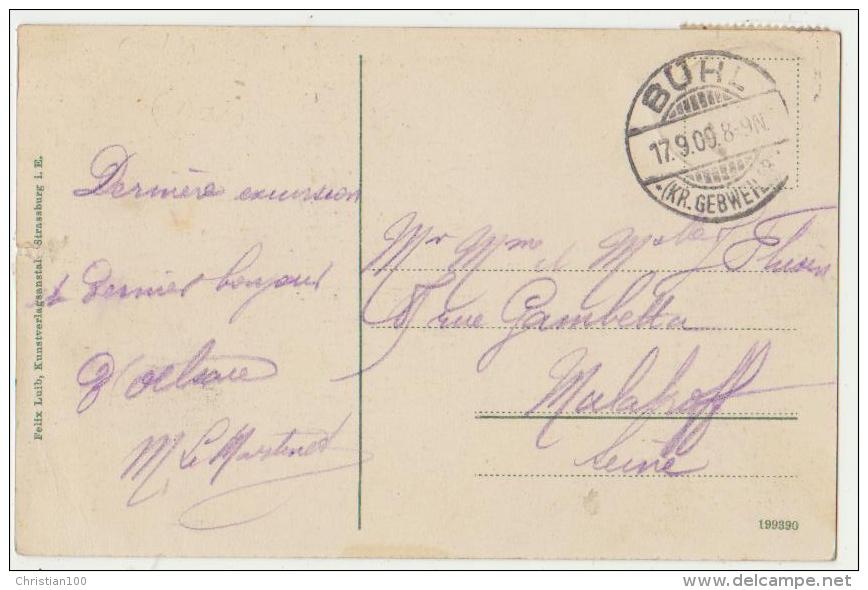 BÜHL
17.9.09. 8-9N.
(KR. GEBWEILER)
Dernière excursion
et dernier bonjour
d'Alsace
M Le Martinet
Mr Mme et Melle J
rue Gambetta
Malakoff
Seine
Felix Luib, Kunstverlagsanstalt Strassburg i. E.
199390
Christian100
delcampe.net